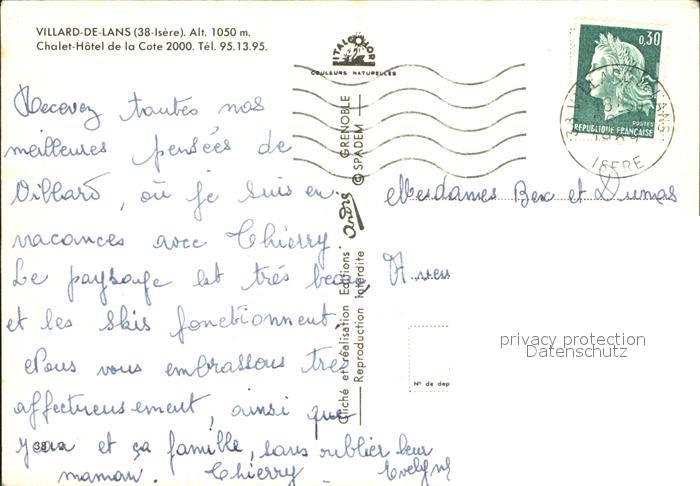 VILLARD-DE-LANS (38-Isère). Alt. 1050 m.
Chalet-Hôtel de la Cote 2000. Tél. 95.13.95.
ITALCOLOR
COULEURS NATURELLES
0,30
POSTES
REPUBLIQUE FRANÇAISE
ISERE
Recevez toutes nos
meilleures pensées de
Villard, où je suis en
vacances avec Thierry.
Le paysage est très beau,
et les skis fonctionnent.
Nous vous embrassons très
affectueusement, ainsi que
et ça famille, sans oublier leur
maman. Thierry Evelyne
Mesdames Bex et Dumas
Cliché et réalisation Editions André GRENOBLE
Reproduction interdite © SPADEM
N° de dep
privacy protection
Datenschutz